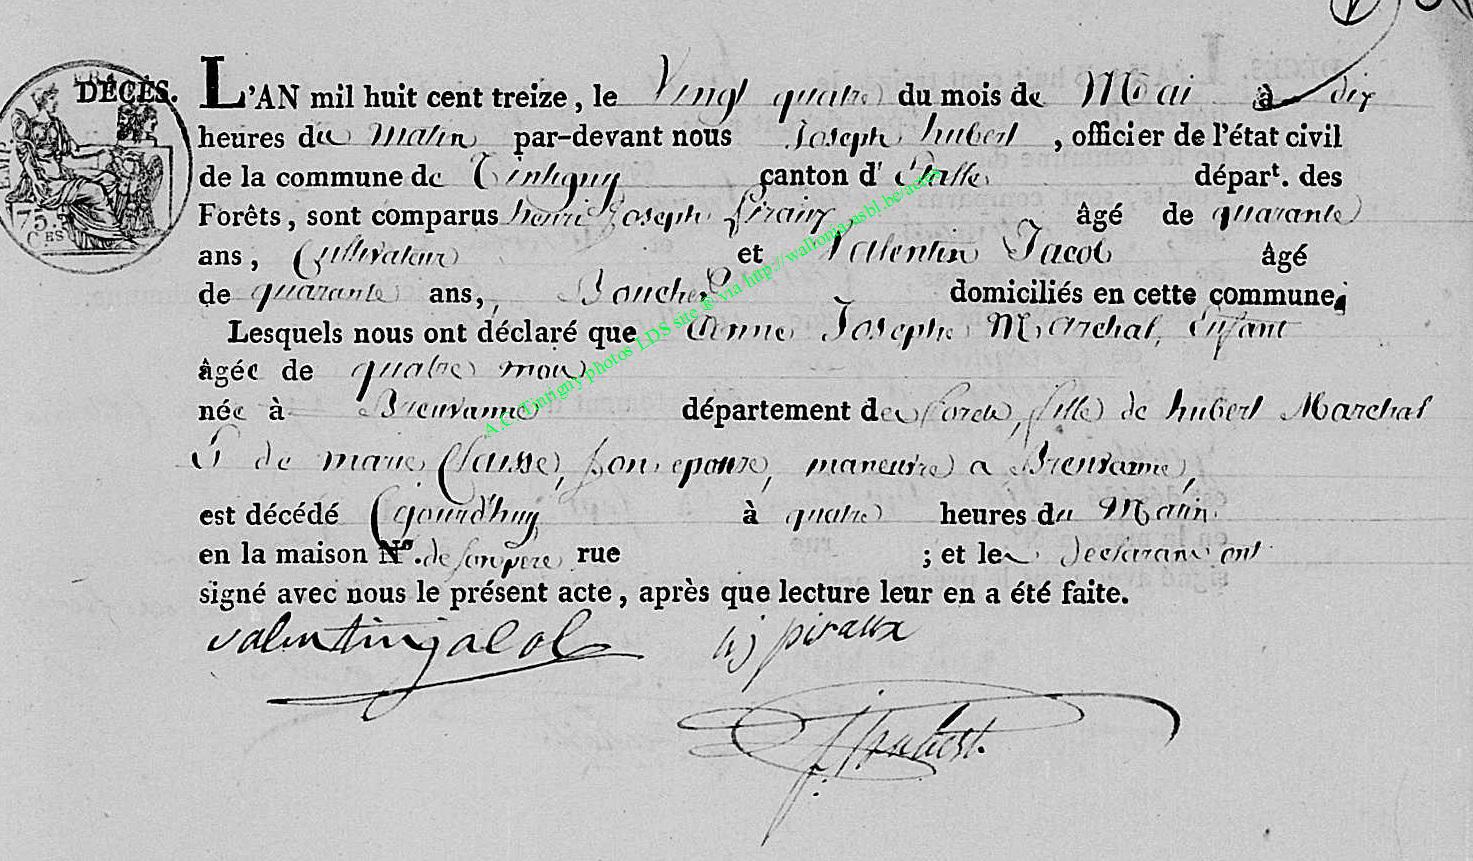 DÉCÈS. L'AN mil huit cent treize, le Vingt quatre du mois de Mai à dix
heures du matin par-devant nous Joseph hubert, officier de l'état civil
de la commune de Tintigny canton d' Etalle départ. des
Forêts, sont comparus henri Joseph Piraux âgé de quarante
ans, Cultivateur et Valentin Jacob âgé
de quarante ans, Boucher domiciliés en cette commune;
Lesquels nous ont déclaré que Anne Josephe Marchal, Enfant
âgée de quatre mois
née à Breuvanne département des forets, fille de hubert Marchal
& de marie Clausse, son epouse, maneuvre a Breuvanne,
est décédé Cejourd'huy à quatre heures du Matin
en la maison N°. de son pere rue ; et les declarans ont
signé avec nous le présent acte, après que lecture leur en a été faite.
valentin jacob hj piraux
J. hubert.
EMP. FRA
75. CES
A.C. Tintigny photos LDS site ® via http://wallonia.asbl.be/actes